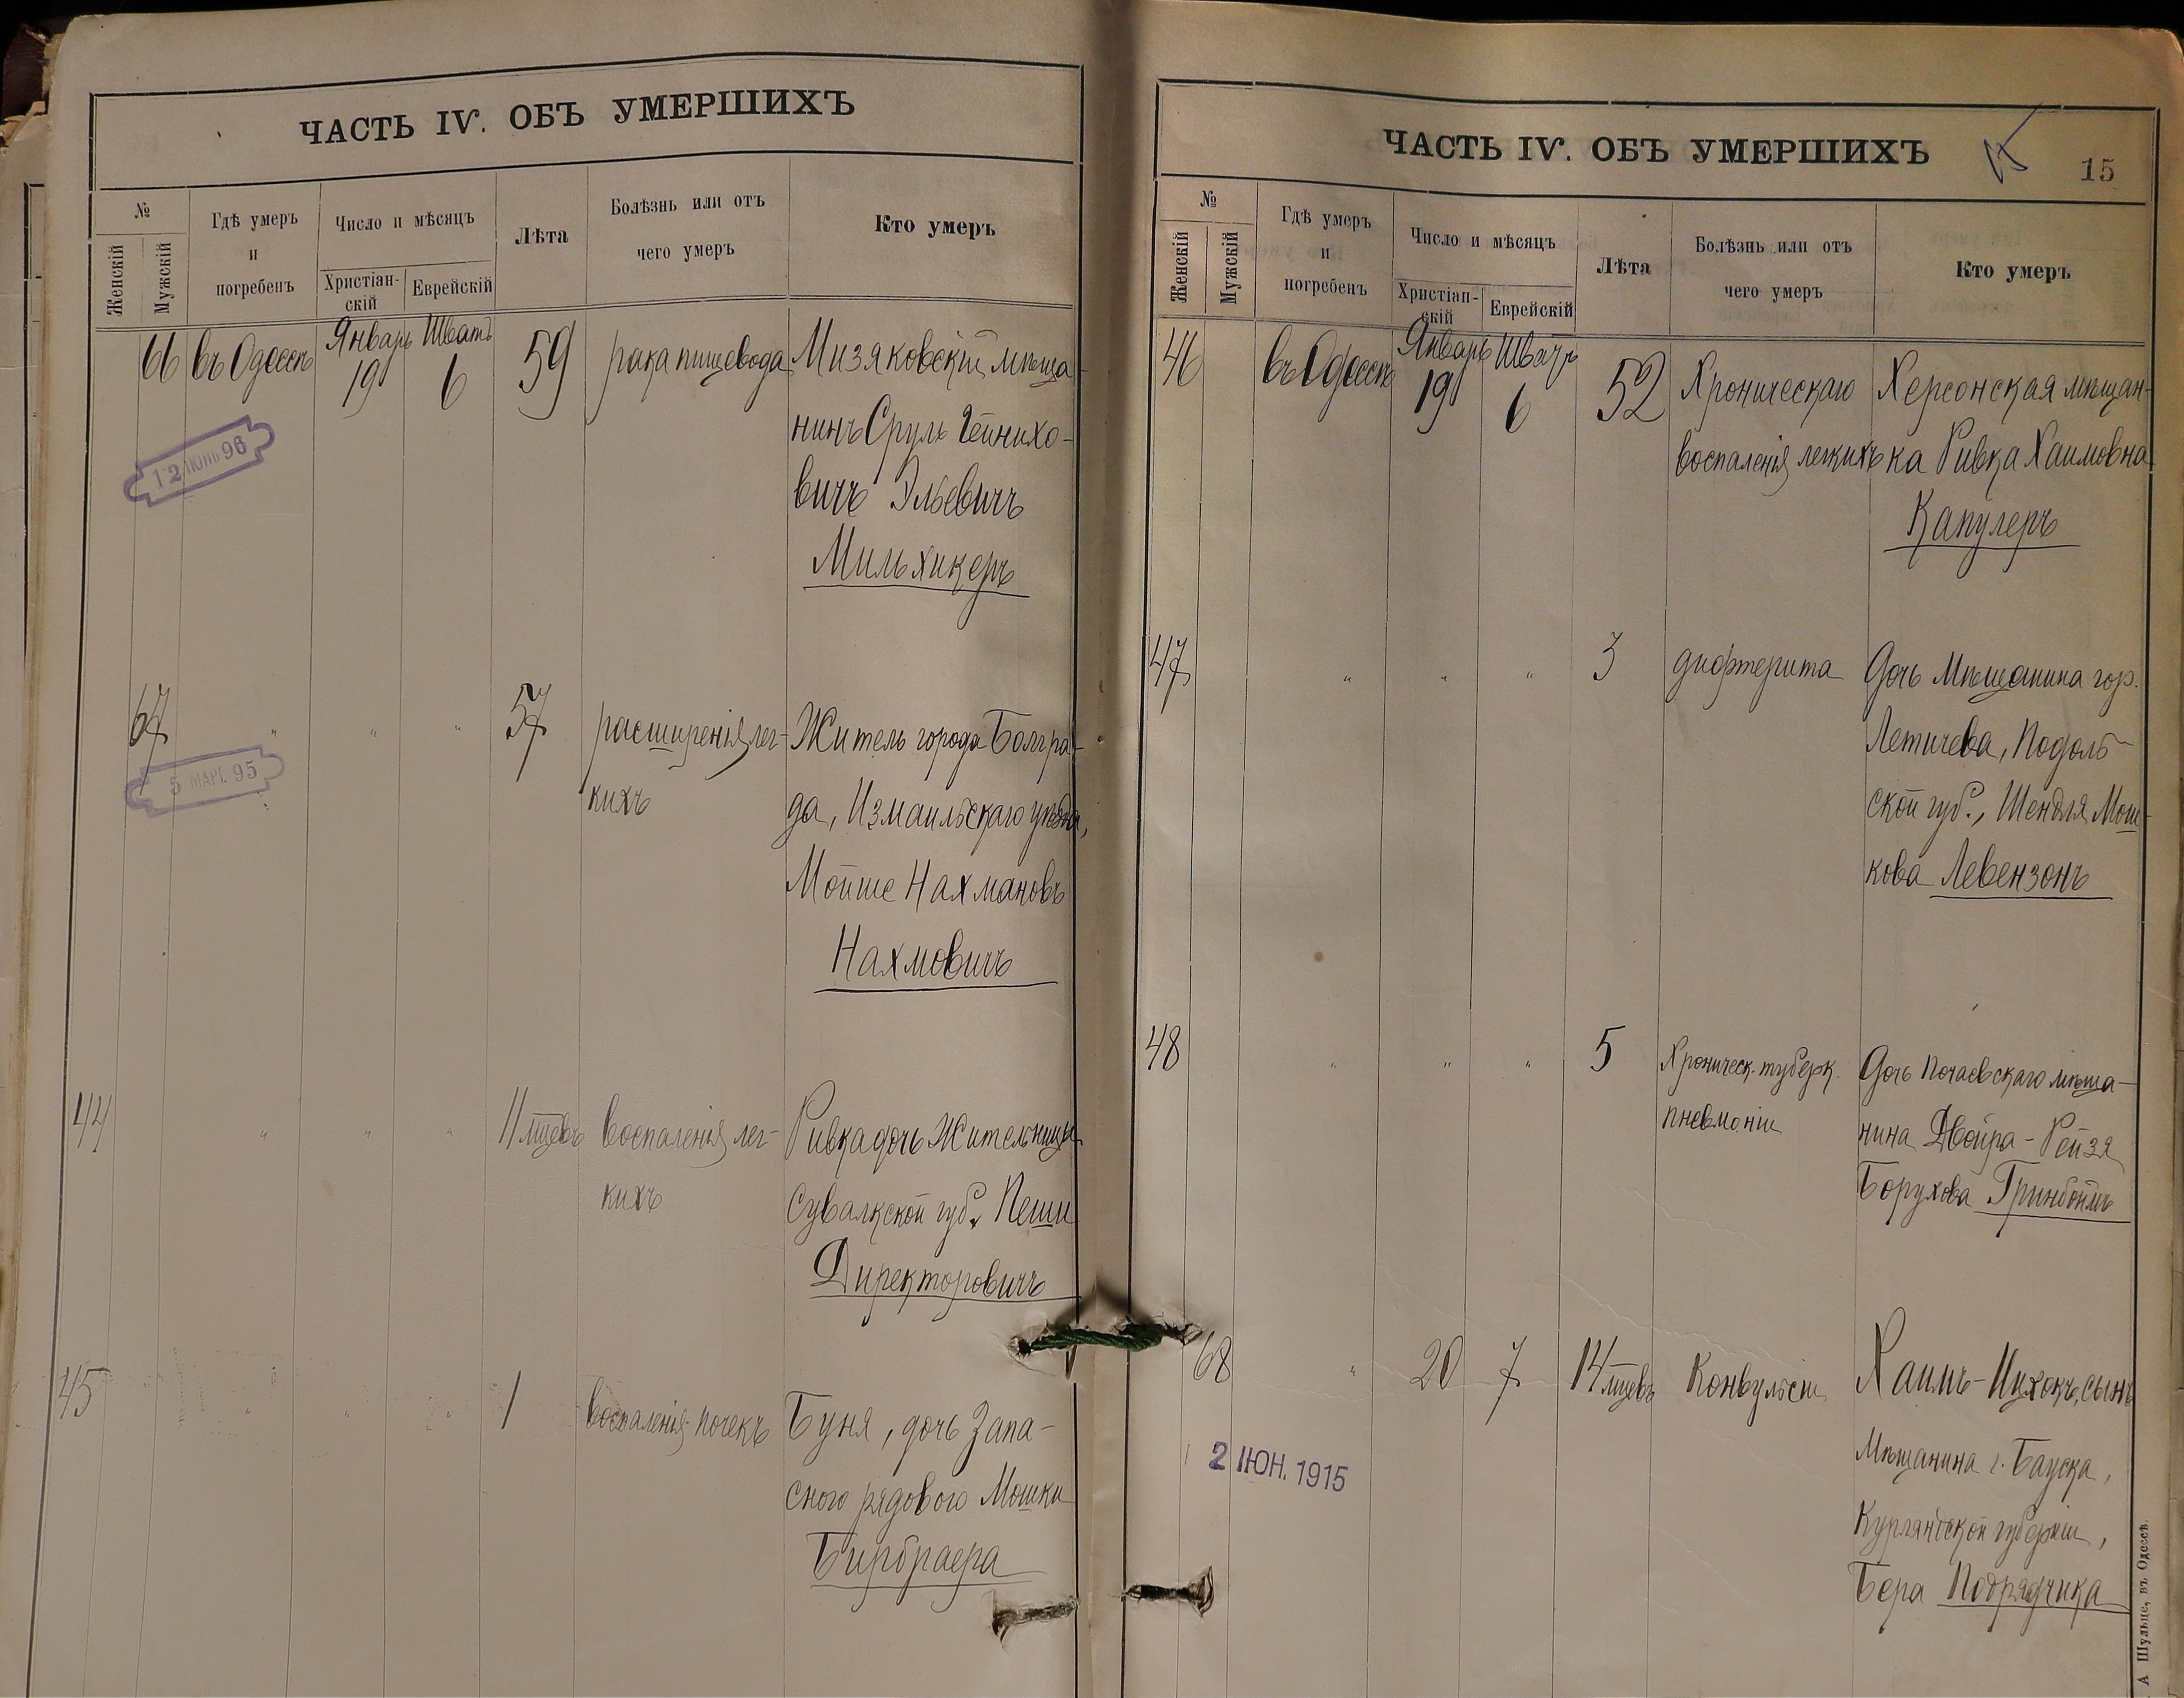 ЧАСТЬ IV. ОБЪ УМЕРШИХЪ
№
Женскій
Мужскій
Гдѣ умеръ
и
погребенъ
Число и мѣсяцъ
Христіан-
скій
Еврейскій
Лѣта
Болѣзнь или отъ
чего умеръ
Кто умеръ
66 въ Одессѣ Январь 19 Шватъ 6 59 рака пищевода Мизяковскій мѣща-
нинъ Сруль Гейнихо-
вичъ Эльевичъ
Мильхикеръ
12 ІЮНЬ 96
67 " " " 57 расширенія лег- Житель города Болгра-
кихъ да, Измаильскаго уѣзда,
Мойше Нахмановъ
Нахмовичъ
5 МАРТ. 95
44 " " " 11 мцевъ воспаленія лег- Ривка дочь Жительницы
кихъ Сувалкской губ. Пеши
Директоровичъ
45 " " " 1 воспаленія почекъ Буня, дочь Запа-
сного рядового Мошки
Бирбраера
ЧАСТЬ IV. ОБЪ УМЕРШИХЪ
15
15
№
Женскій
Мужскій
Гдѣ умеръ
и
погребенъ
Число и мѣсяцъ
Христіан-
скій
Еврейскій
Лѣта
Болѣзнь или отъ
чего умеръ
Кто умеръ
46 въ Одессѣ Январь 19 Шватъ 6 52 Хроническаго Херсонская мѣщан-
воспаленія легкихъ ка Ривка Хаимовна
Капулеръ
47 " " " 3 дифтерита Дочь Мѣщанина гор.
Летичева, Подоль-
ской губ., Шендля Мош-
кова Левензонъ
48 " " " 5 Хроническ. туберк. Дочь Почаевскаго мѣща-
пневмоніи нина Двойра-Рейзя
Борухова Гринбоймъ
68 " 20 7 14 мцевъ Конвульсіи Хаимъ-Ицхокъ, сынъ
Мѣщанина г. Бауска,
Курляндской губерніи,
Бера Подрядчика
2 ІЮН. 1915
А Шульце, въ Одессѣ.